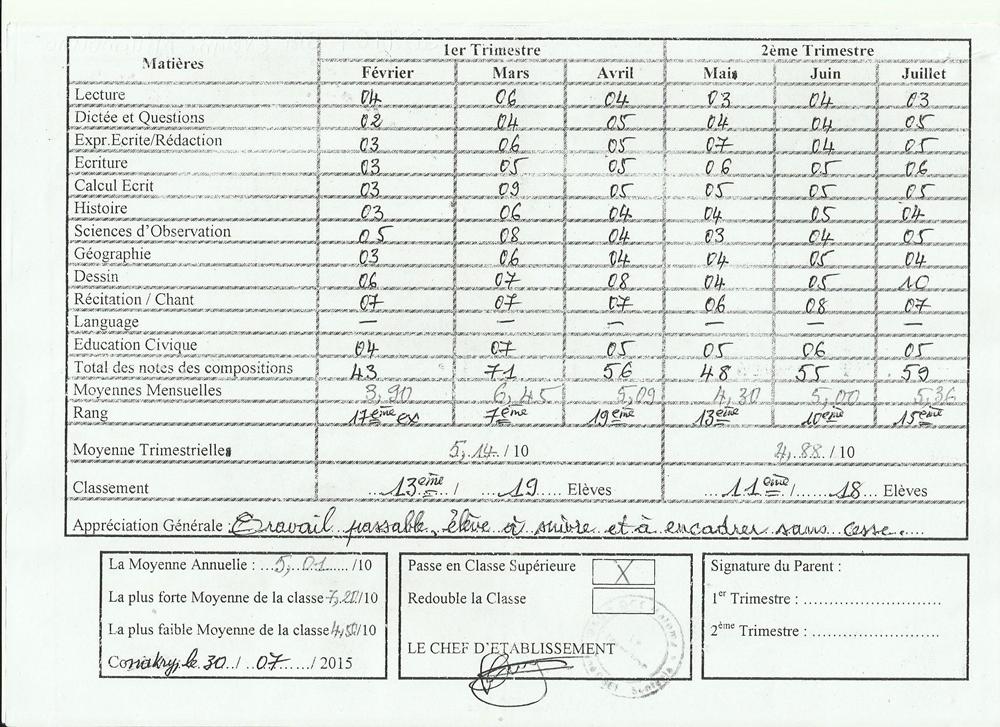 Matières 1er Trimestre 2ème Trimestre
Février Mars Avril Mais Juin Juillet
Lecture 04 06 04 03 04 03
Dictée et Questions 02 04 05 04 04 05
Expr.Ecrite/Rédaction 03 06 05 07 04 05
Ecriture 03 05 05 06 05 06
Calcul Ecrit 03 09 05 05 05 05
Histoire 03 06 04 04 05 04
Sciences d'Observation 05 08 04 03 04 05
Géographie 03 06 04 04 05 04
Dessin 06 07 08 04 05 10
Récitation / Chant 07 07 07 06 08 07
Language — — — — — —
Education Civique 04 07 05 05 06 05
Total des notes des compositions 43 71 56 48 55 59
Moyennes Mensuelles 3,90 6,45 5,09 4,30 5,00 5,36
Rang 17ème ex 7ème 19ème 13ème 10ème 15ème
Moyenne Trimestrielles 5,14 / 10 4,88 / 10
Classement ...13ème / ...19..... Elèves ...11ème /......18... Elèves
Appréciation Générale : Travail passable, élève à suivre et à encadrer sans cesse.
La Moyenne Annuelle : ...5,01...../10
La plus forte Moyenne de la classe 7,20/10
La plus faible Moyenne de la classe /10
Conakry, le 30../ ..07..../ 2015
Passe en Classe Supérieure X
Redouble la Classe
LE CHEF D'ETABLISSEMENT
Signature du Parent :
1er Trimestre : ..........................
2ème Trimestre : ........................